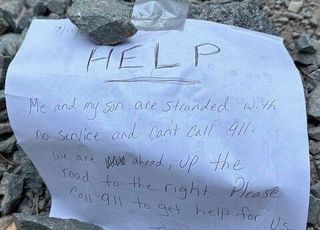 HELP
Me and my son are stranded with
no service and Cant Call 911.
We are ahead, up the
road to the right Please
Call 911 to get help for us